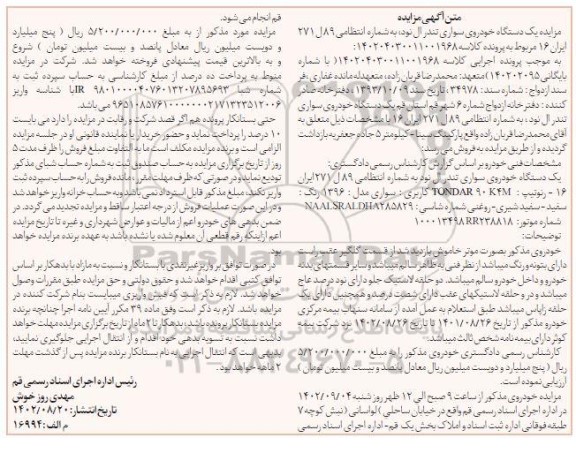 متن آگهی مزایده
مزایده یک دستگاه خودروی سواری تندر ال نود، به شماره انتظامی ۸۹ل۲۷۱
ایران ۱۶ مربوط به پرونده کلاسه ۱۴۰۲۰۴۰۳۰۰۱۱۰۰۱۹۶۸
به موجب پرونده اجرایی کلاسه ۱۴۰۲۰۴۰۳۰۰۱۱۰۰۱۹۶۸( با شماره
بایگانی ۱۴۰۲۰۲۰۹۵)متعهد: محمدرضا قربان زاده، متعهدله مانده غفاری ،فر
سند ازدواج : شماره سند: ۳۴۹۷۸، تاریخ سند ۱۳۹۳/۱۰/۰۹، دفترخانه صادر
کننده : دفترخانه ازدواج شماره ۶ شهر قم استان قم یک دستگاه خودروی سواری
تندر ال نود ، به شماره انتظامی ۸۹ل۲۷۱ ایران ۱۶ با مشخصات ذیل متعلق به
آقای محمدرضا قربان زاده واقع پارکینگ سینا - کیلومتر ۵ جاده جعفریه بازداشت
گردیده و از طریق مزایده به فروش می رسد:
مشخصات فنی خودرو بر اساس گزارش کارشناس رسمی دادگستری:
یک دستگاه خودروی سواری تندر ال نود به شماره انتظامی ۸۹ل۲۷۱ ایران
۱۶ - رنوتیپ : TONDAR 90 K4M کاربری : سواری مدل : ۱۳۹۶ رنگ :
سفید - سفید شیری - روغنی شماره شاسی : NAALSRALDHA285829
شماره موتور: 100013498RR238818
توضیحات:
خودروی مذکور بصورت موتر خاموش بازدید شد از قسمت گلگیر عقب راست
دارای بتونه و رنگ میباشد از نظر فنی به ظاهر سالم میباشد و سایر قسمتهای بدنه
خودرو و داخل خودرو سالم میباشد. دو حلقه لاستیک جلو دارای نود درصد عاج
میباشد و در و حلقه لاستیکهای عقب دارای شصت درصد و همچنین دارای یک
حلقه زاپاس میباشد طبق استعلام به عمل آمده از سامانه سنهاب بیمه مرکزی
خودرو مذکور از تاریخ ۱۴۰۱/۰۸/۲۶ تا تاریخ ۱۴۰۲/۰۸/۲۶ نزد شرکت بیمه
کوثر دارای بیمه نامه شخص ثالث میباشد.
کارشناس رسمی دادگستری خودروی مذکور را به مبلغ ۵/۲۰۰/۰۰۰/۰۰۰
ریال ( پنج میلیارد و دویست میلیون ریال معادل پانصد و بیست میلیون تومان )
ارزیابی نموده است.
مزایده خودروی مذکور از ساعت ۹ صبح الی ۱۲ ظهر روز شنبه ۱۴۰۲/۰۹/۰۴
در اداره اجرای اسناد رسمی قم واقع در خیابان ساحلی )لواسانی (نبش کوچه ۷
طبقه فوقانی اداره ثبت اسناد و املاک بخش یک قم- اداره اجرای اسناد رسمی
قم انجام می شود.
مزایده مورد مذکور از به مبلغ ۵/۲۰۰/۰۰۰/۰۰۰ ریال ( پنج میلیارد
و دویست میلیون ریال معادل پانصد و بیست میلیون تومان ) شروع
و به بالاترین قیمت پیشنهادی فروخته خواهد شد. شرکت در مزایده
منوط به پرداخت ده درصد از مبلغ کارشناسی به حساب سپرده ثبت به
و حتی بستانکار پرونده هم اگر قصد شرکت و رقابت در مزایده را دارد می بایست
۱۰ درصد را پرداخت نماید و حضور خریدار یا نماینده قانونی او در جلسه مزایده
الزامی است و برنده مزایده مکلف است ما به التفاوت مبلغ فروش را ظرف مدت ۵
روز از تاریخ برگزاری مزایده به حساب صندوق ثبت به شماره حساب شبای مذکور
تودیع نماید و در صورتی که ظرف مهلت مقرر، مانده فروش را به حساب سپرده ثبت
واریز نکند، مبلغ مذکور قابل استرداد نمی باشد و به حساب خزانه واریز خواهد شد
و در این صورت عملیات فروش از درجه اعتبار ساقط و مزایده تجدید می گردد. در
ضمن بدهی های خودرو اعم از مالیات و عوارض شهرداری و غیره تا تاریخ مزایده
اعم از اینکه رقم قطعی آن معلوم شده یا نشده باشد به عهده برنده مزایده خواهد
بود
در صورت توافق بر واریز غیر نقدی با بستانکار و نسبت به مازاد با بدهکار بر اساس
توافق کتبی اقدام خواهد شد و حقوق دولتی و حق مزایده طبق مقررات وصول
خواهد شد. لازم به ذکر است که فیش واریزی میبایست بنام شرکت کننده در
مزایده باشد. لازم به ذکر است وفق ماده ۳۹ مکرر آیین نامه اجرا چنانچه برنده
مزایده بستانکار پرونده باشد، بدهکار تا ۲ ماه از تاریخ برگزاری مزایده مهلت خواهد
داشت نسبت به تسویه بدهی خود اقدام و از انتقال اجرایی جلوگیری نمایید،
بدیهی است که انتقال اجرائی به نام بستانکار برنده مزایده پس از گذشت مهلت
۲ ماهه خواهد بود.
رئیس اداره اجرای اسناد رسمی قم
مهدی روز خوش
تاریخ انتشار: ۱۴۰۲/۰۸/۲۰
م الف: ۱۶۹۹۴